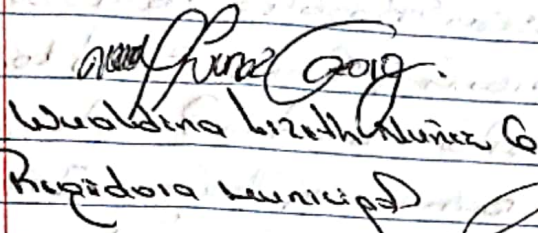 Nuñez
Wualdina Lizeth Nuñez G
Regidora Municipal